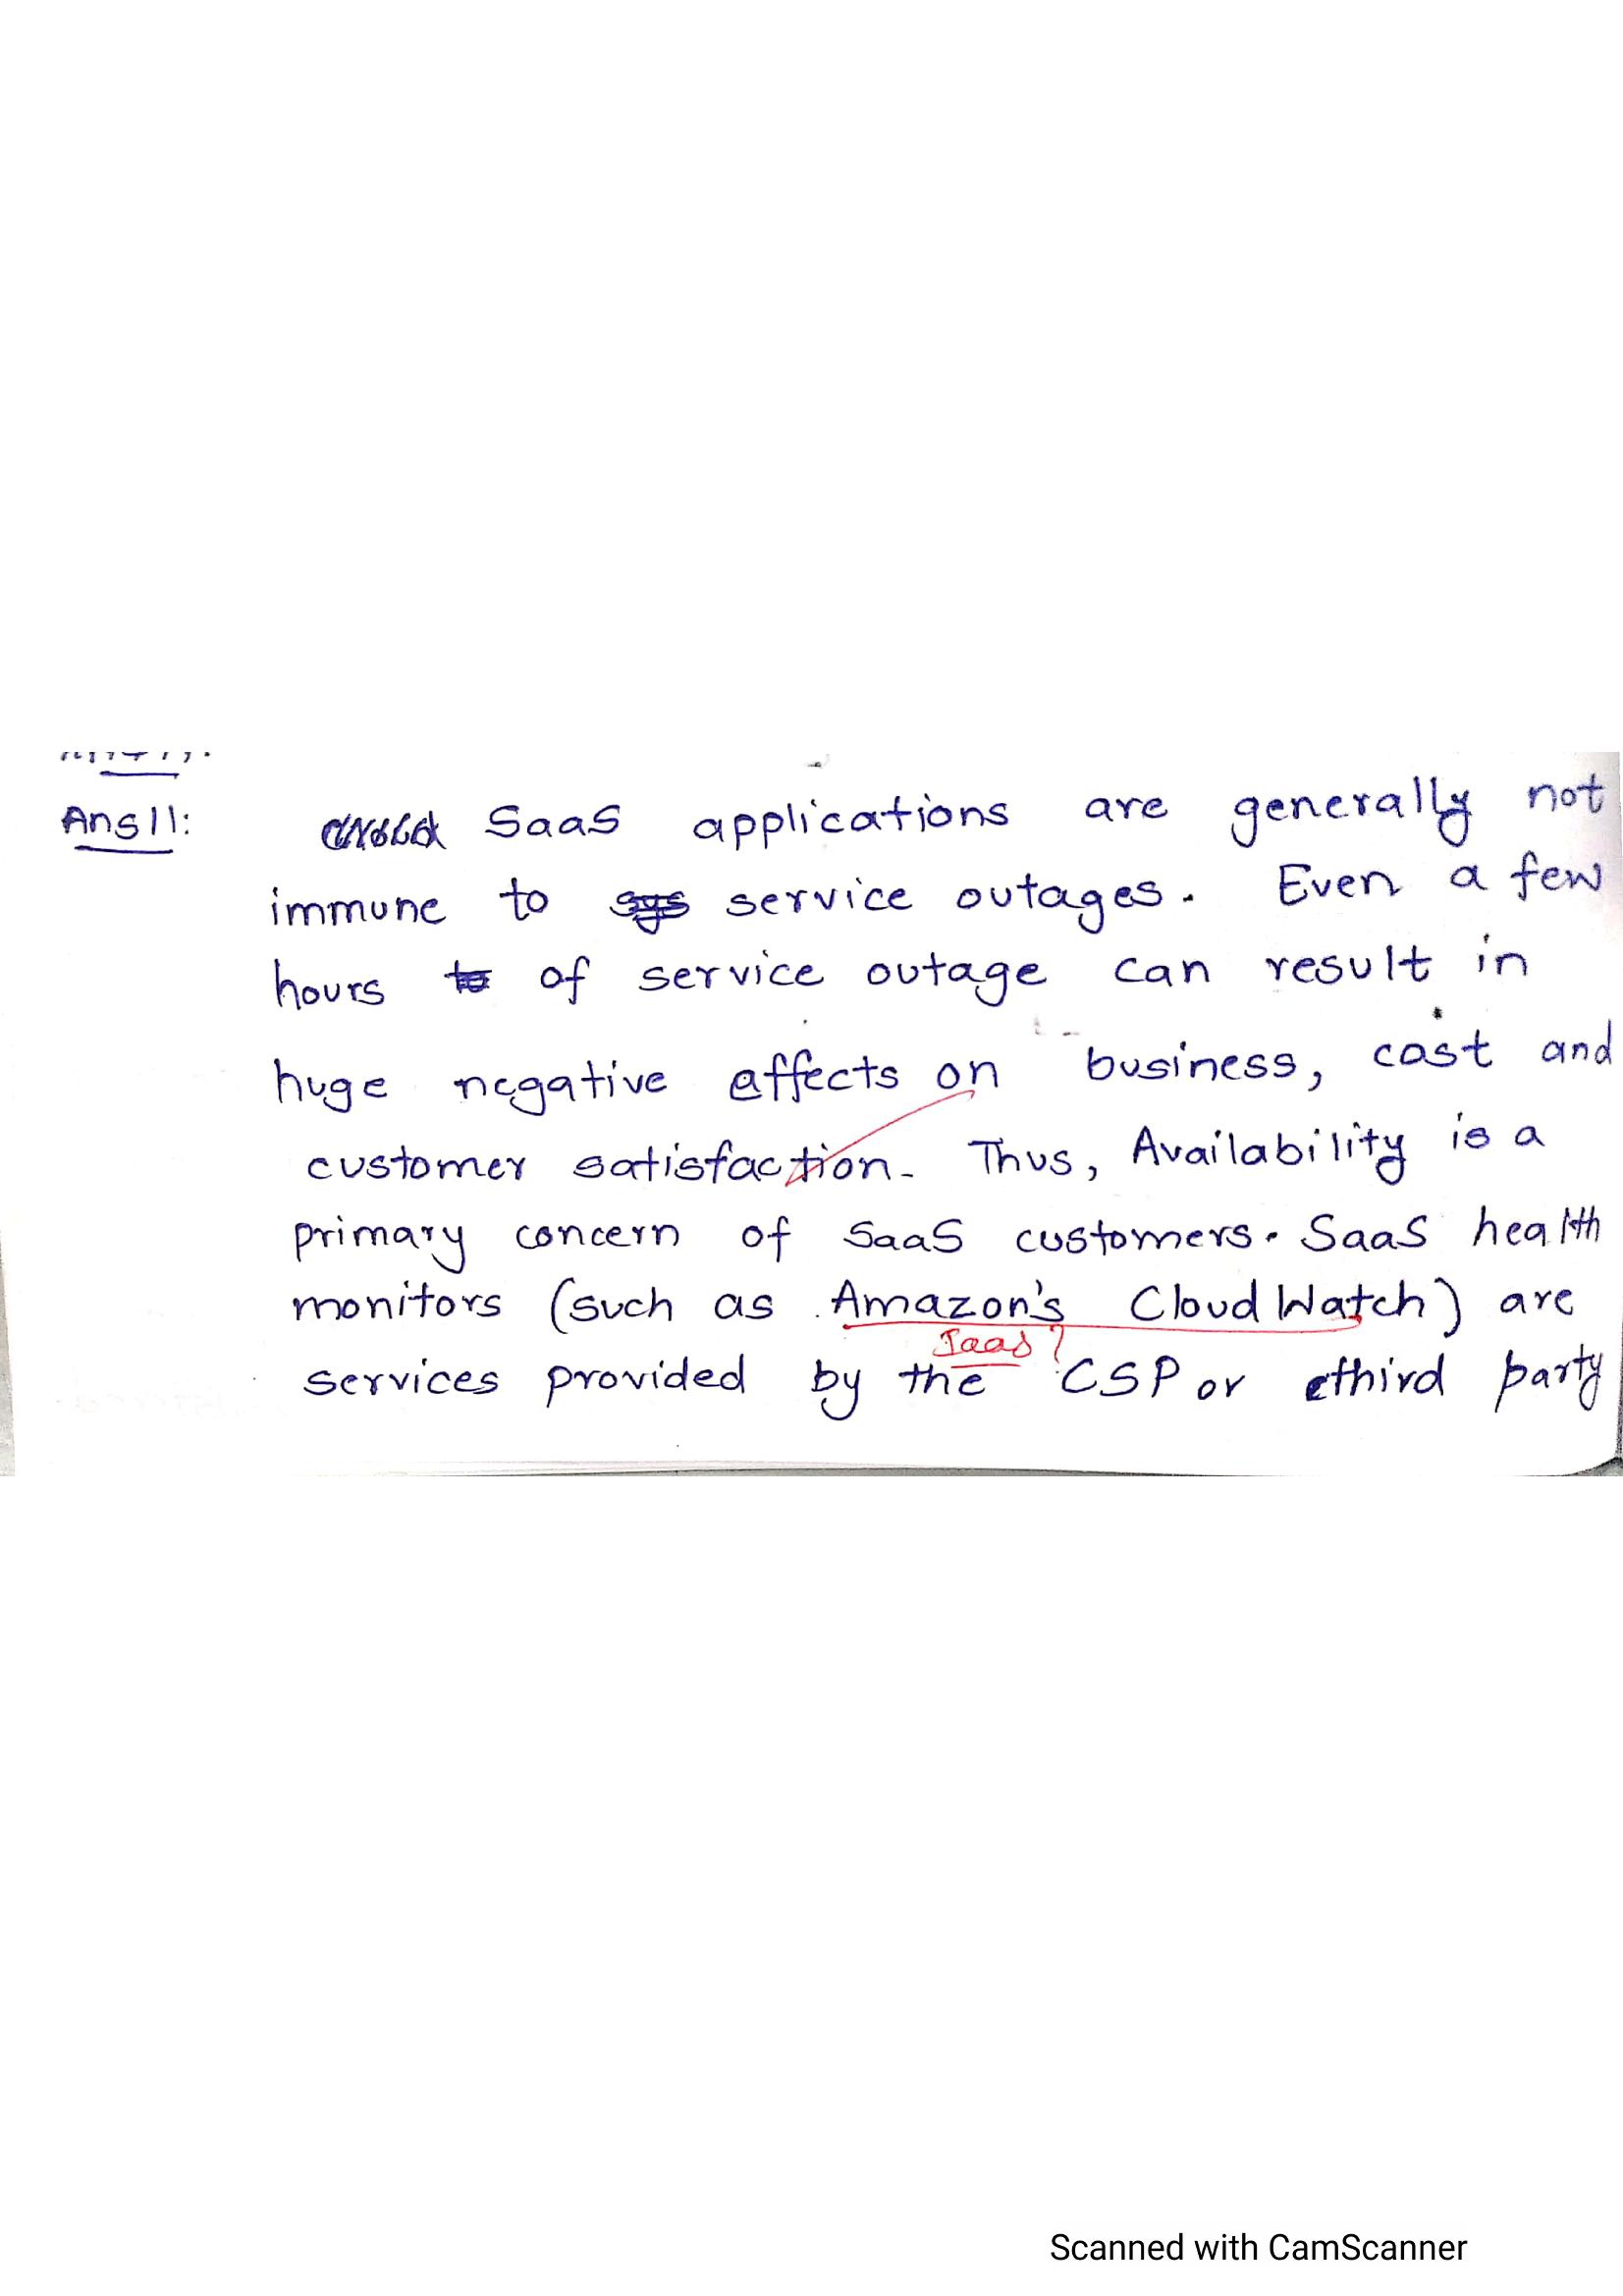 Ans11: SaaS applications are generally not
immune to service outages. Even a few
hours of service outage can result in
huge negative effects on business, cost and
customer satisfaction. Thus, Availability is a
primary concern of SaaS customers. SaaS health
monitors (such as Amazon's CloudWatch) are
IaaS?
services provided by the CSP or third party
Scanned with CamScanner